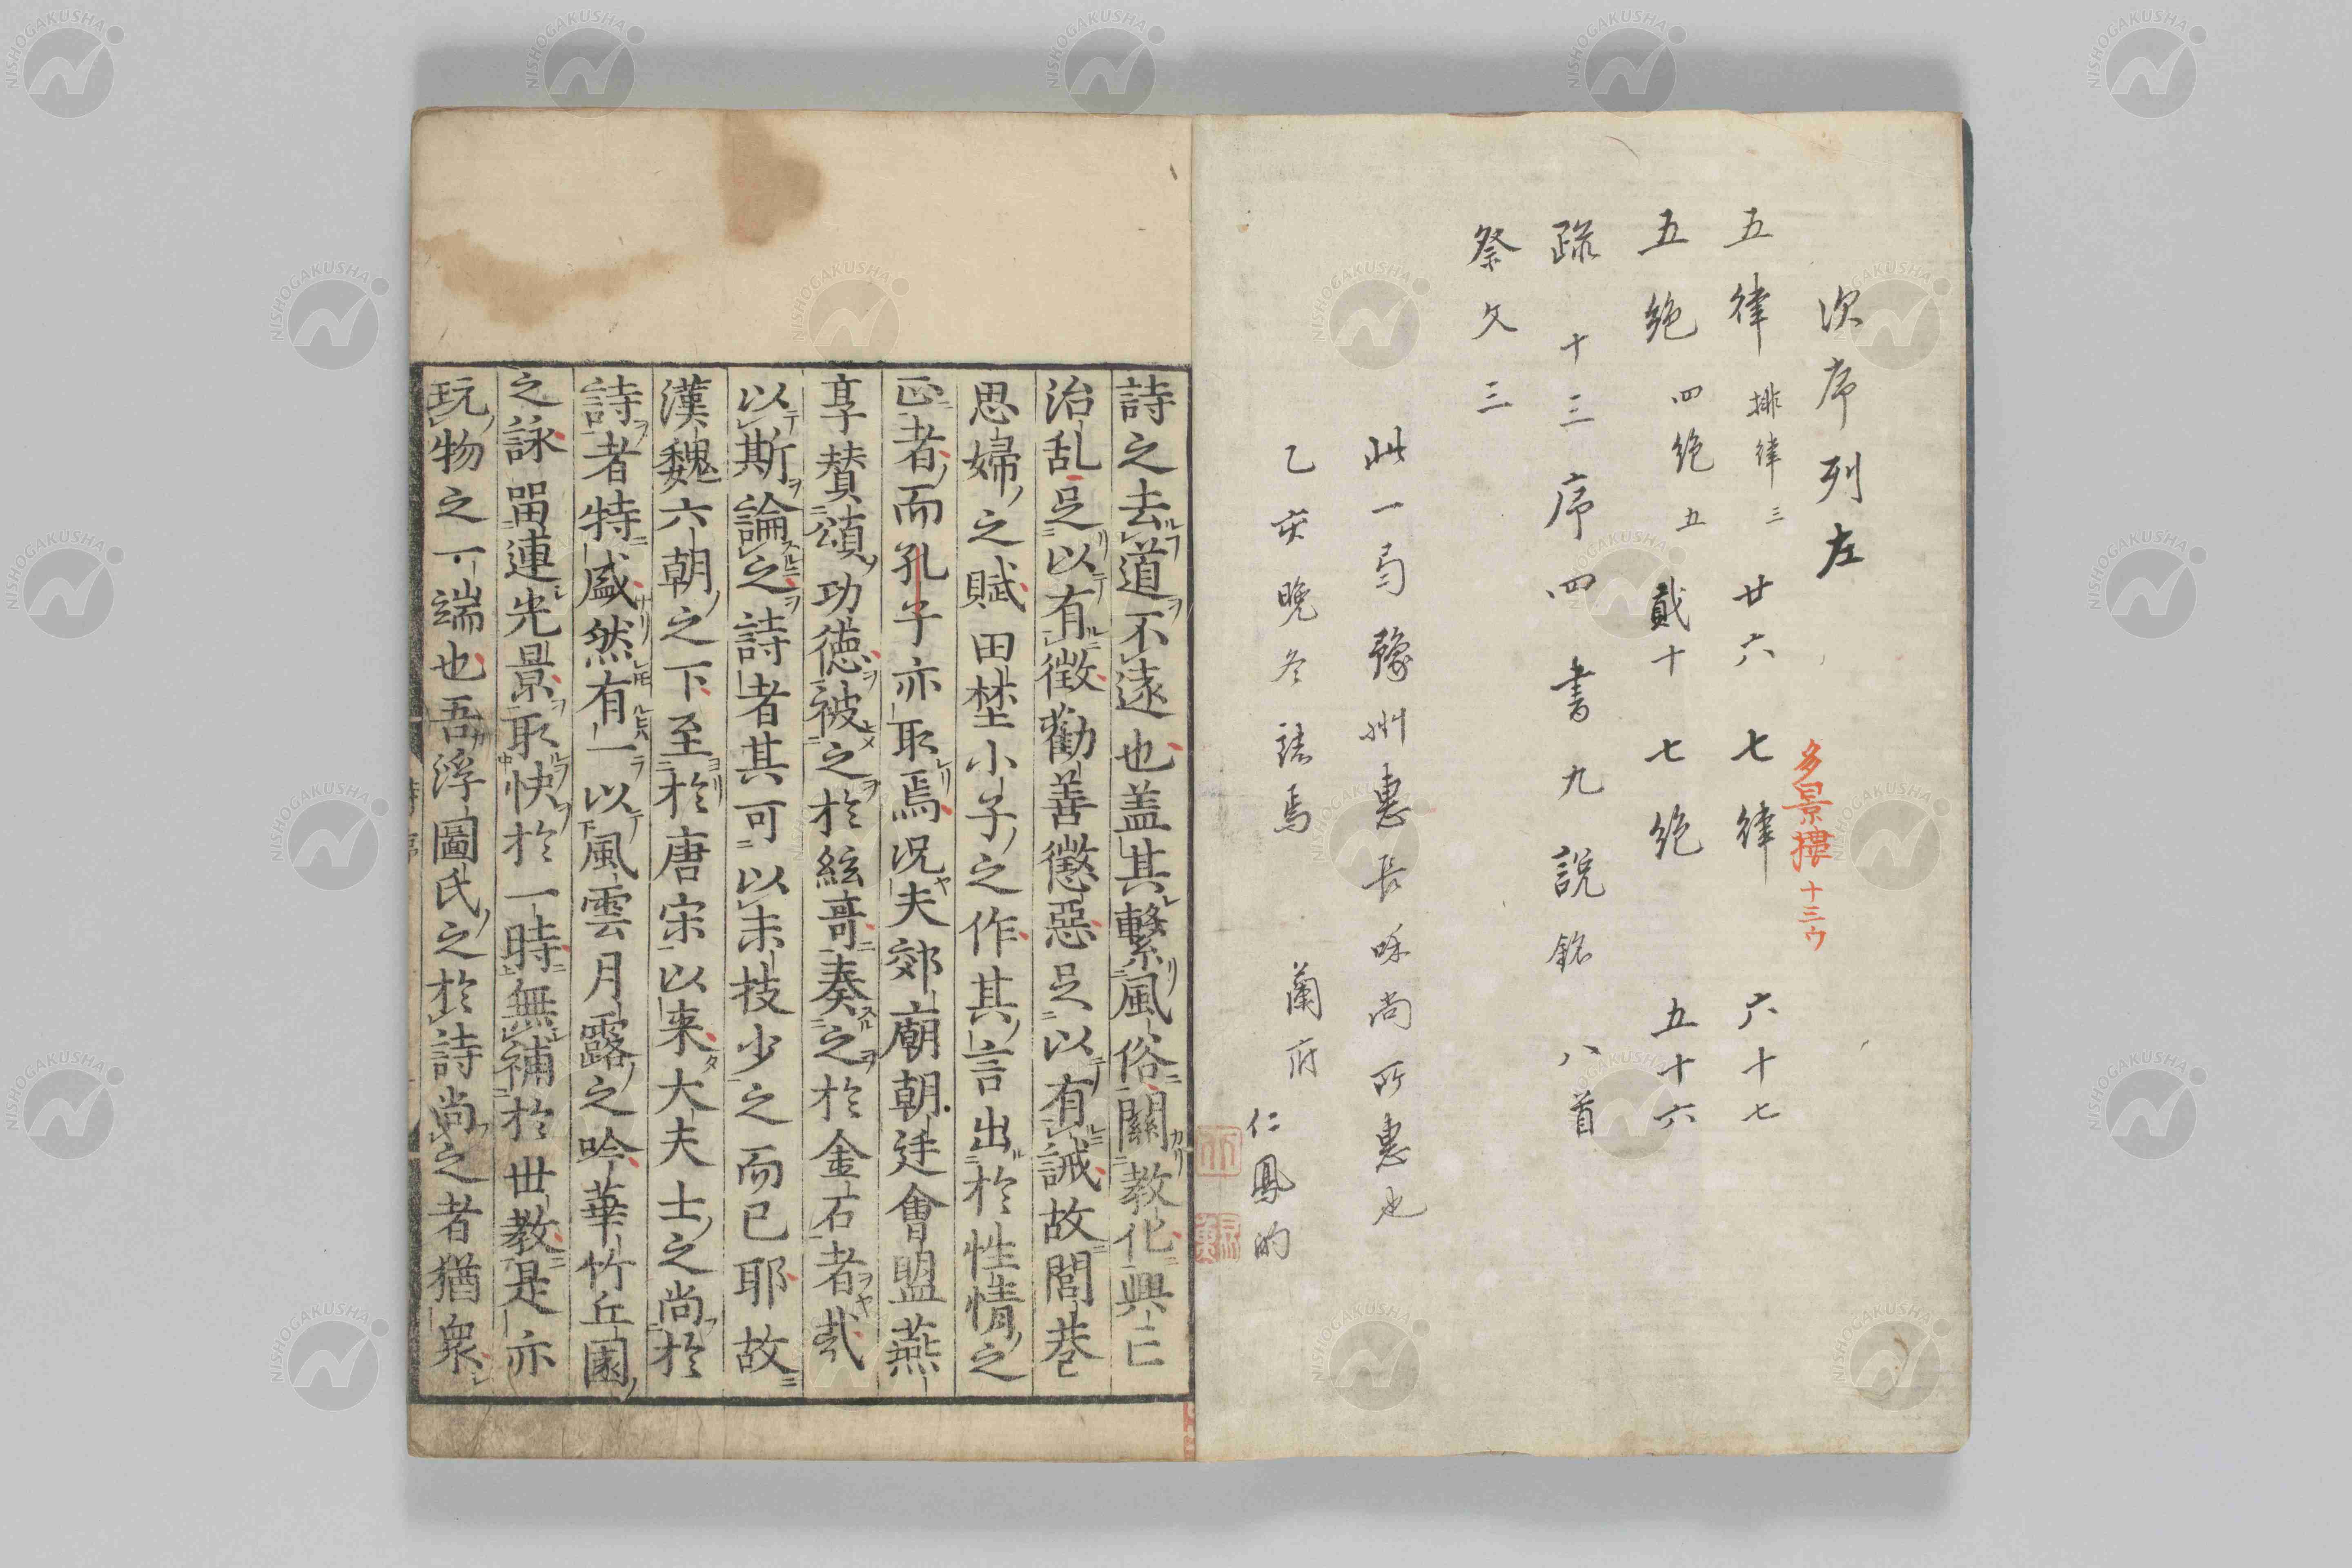 次序列左
多景摟 十三ウ
五律 排律三 廿六 七律 六十七
五絶 四絶五 貳十 七絶 五十六
疏十三 序四 書九 說 銘 八首
祭文三
此一 豫州惠長 尚所惠也
乙亥晚冬 焉
蘭府
仁鳳
詩之去道不遠也盖其繫風俗關教化興亡
治乱足以有徴勸善懲惡足以有誡故閭巷
思婦之賦田埜小子之作其言出於性情之
正者而孔子亦取焉况夫郊廟朝廷會盟燕
享賛頌功徳被之於絃哥奏之於金石者哉
以斯論之詩者其可以末技少之而已耶故
漢魏六朝之下至於唐宋以来大夫士之尚於
詩者特盛然有一以風雲月露之吟華竹丘園
之詠畄連光景取快於一時無補於世教是亦
玩物之一端也吾浮圖氏之於詩尚之者猶衆
NISHOGAKUSHA